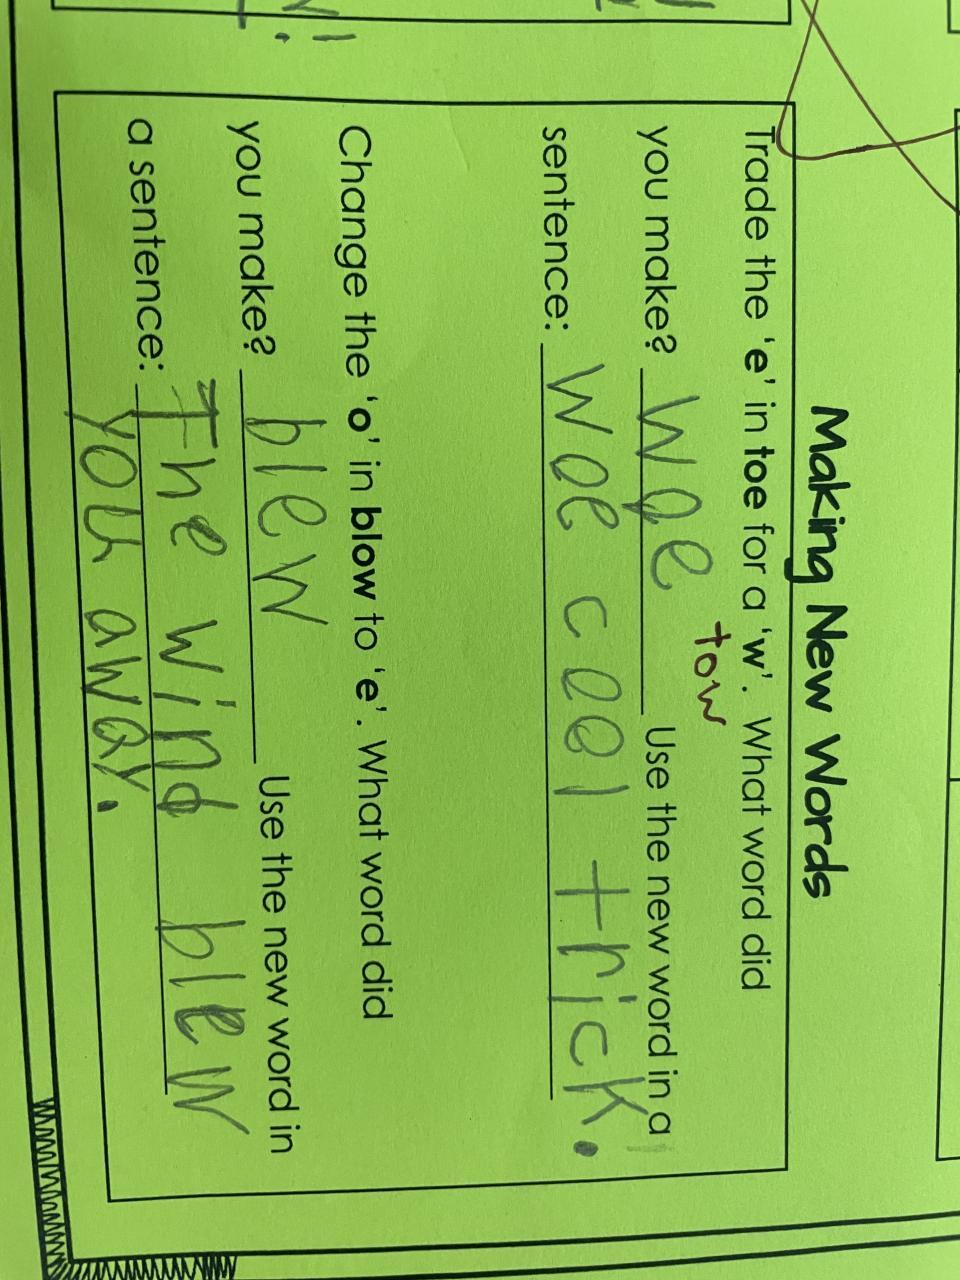 Making New Words
Trade the 'e' in toe for a 'w'. What word did
tow
you make? Woe Use the new word in a
sentence: Woe cool trick.
Change the 'o' in blow to 'e'. What word did
you make? blew Use the new word in
a sentence: The wind blew
you away.